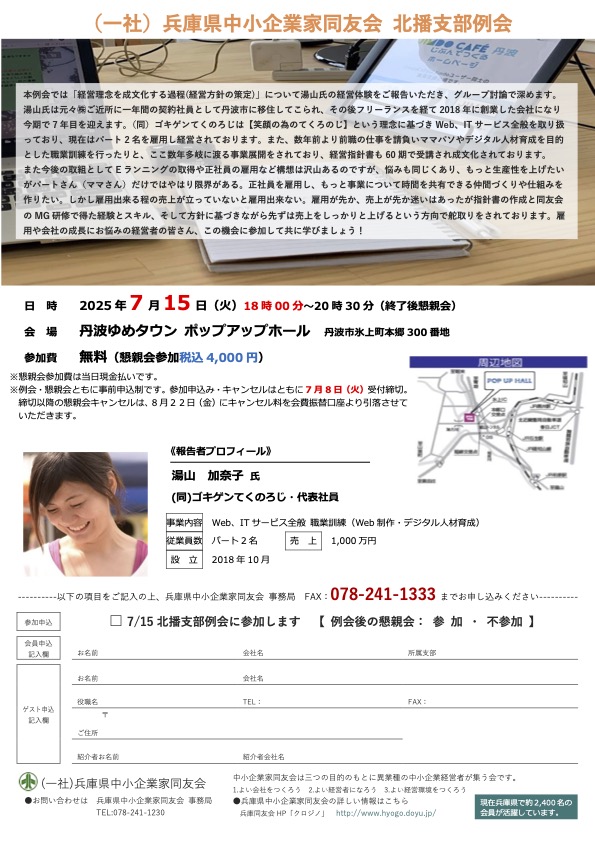 （一社）兵庫県中小企業家同友会 北播支部例会
本例会では「経営理念を成文化する過程(経営方針の策定)」について湯山氏の経営体験をご報告いただき、グループ討論で深めます。
湯山氏は元々㈱ご近所に一年間の契約社員として丹波市に移住してこられ、その後フリーランスを経て 2018 年に創業した会社になり
今期で 7 年目を迎えます。（同）ゴキゲンてくのろじは【笑顔の為のてくろのじ】という理念に基づき Web、IT サービス全般を取り扱
っており、現在はパート 2 名を雇用し経営されております。また、数年前より前職の仕事を請負いママパソやデジタル人材育成を目的
とした職業訓練を行ったりと、ここ数年多岐に渡る事業展開をされており、経営指針書も 60 期で受講され成文化されております。
また今後の取組として E ランニングの取得や正社員の雇用など構想は沢山あるのですが、悩みも同じくあり、もっと生産性を上げたい
がパートさん（ママさん）だけではやはり限界がある。正社員を雇用し、もっと事業について時間を共有できる仲間づくりや仕組みを
作りたい。しかし雇用出来る程の売上が立っていないと雇用出来ない。雇用が先か、売上が先か迷いはあったが指針書の作成と同友会
の MG 研修で得た経験とスキル、そして方針に基づきながら先ずは売上をしっかりと上げるという方向で舵取りをされております。雇
用や会社の成長にお悩みの経営者の皆さん、この機会に参加して共に学びましょう！
日 時 2025 年 7 月 15 日（火）18 時 00 分～20 時 30 分（終了後懇親会）
会 場 丹波ゆめタウン ポップアップホール 丹波市氷上町本郷 300 番地
参加費 無料（懇親会参加税込 4,000 円）
※懇親会参加費は当日現金払いです。
※例会・懇親会ともに事前申込制です。参加申込み・キャンセルはともに７月８日（火）受付締切。
締切以降の懇親会キャンセルは、８月２２日（金）にキャンセル料を会費振替口座より引落させて
いただきます。
周辺地図
POP UP HALL
《報告者プロフィール》
湯山 加奈子 氏
(同)ゴキゲンてくのろじ・代表社員
事業内容 Web、IT サービス全般 職業訓練（Web 制作・デジタル人材育成）
従業員数 パート２名 売 上 1,000 万円
設 立 2018 年 10 月
----------以下の項目をご記入の上、兵庫県中小企業家同友会 事務局 FAX：078-241-1333 までお申し込みください----------
参加申込 □ 7/15 北播支部例会に参加します 【 例会後の懇親会： 参 加 ・ 不参加 】
会員申込
記入欄
お名前 会社名 所属支部
ゲスト申込
記入欄
お名前 会社名
役職名 TEL： FAX：
〒
ご住所
紹介者お名前 紹介者会社名
(一社)兵庫県中小企業家同友会
●お問い合わせは 兵庫県中小企業家同友会 事務局
TEL:078-241-1230
中小企業家同友会は三つの目的のもとに異業種の中小企業経営者が集う会です。
1.よい会社をつくろう 2.よい経営者になろう 3.よい経営環境をつくろう
●兵庫県中小企業家同友会の詳しい情報はこちら
兵庫同友会 HP「クロジノ」 http://www.hyogo.doyu.jp/
現在兵庫県で約 2,400 名の
会員が活躍しています。